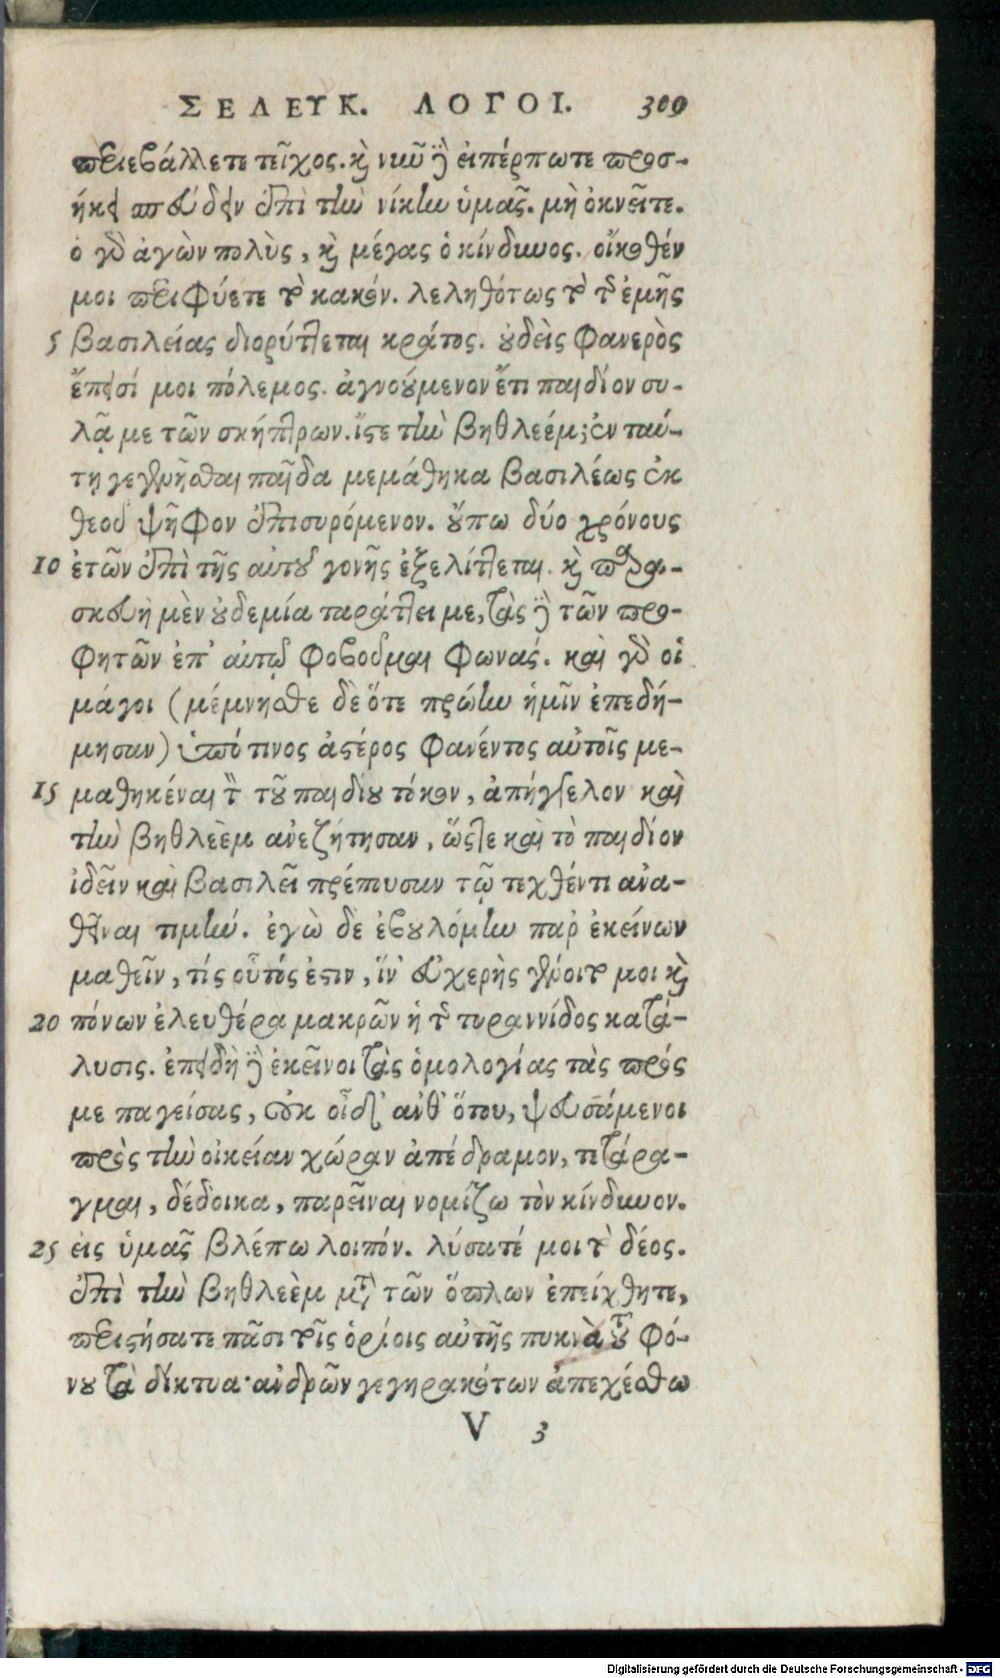 ΣΕΛΕΥΚ. ΛΟΓΟΙ. 309
περιεβάλλετε τεῖχος. καὶ νῦν δὲ εἰπέρ ποτε προσ-
ήκει σπεύδειν ἐπὶ τὴν νίκην ὑμᾶς. μὴ ὀκνεῖτε.
ὁ γὰρ ἀγὼν πολὺς, καὶ μέγας ὁ κίνδυνος. οἴκοθέν
μοι περιφύεται τὸ κακόν. λεληθότως τὸ τῆς ἐμῆς
5 βασιλείας διορύττεται κράτος. οὐδεὶς φανερὸς
ἔπεισί μοι πόλεμος. ἀγνοούμενον ἔτι παιδίον συ-
λᾷ με τῶν σκήπτρων. ἴστε τὴν βηθλεέμ; ἐν ταύ-
τῃ γεγεννῆσθαι παῖδα μεμάθηκα βασιλέως ἐκ
θεοῦ ψῆφον ἐπισυρόμενον. οὔπω δύο χρόνους
10 ἐτῶν ἐπὶ τῆς αὐτοῦ γονῆς ἐξελίττεται. καὶ παρα-
σκευὴ μὲν οὐδεμία ταράττει με, τὰς δὲ τῶν προ-
φητῶν ἐπ' αὐτῷ φοβοῦμαι φωνάς. καὶ γὰρ οἱ
μάγοι (μέμνησθε δὲ ὅτε πρώτην ἡμῖν ἐπεδή-
μησαν) ὑπό τινος ἀστέρος φανέντος αὐτοῖς με-
15 μαθηκέναι τὸν τοῦ παιδίου τόκον, ἀπήγγελον καὶ
τὴν βηθλεὲμ ἀνεζήτησαν, ὥστε καὶ τὸ παιδίον
ἰδεῖν καὶ βασιλεῖ πρέπουσαν τῷ τεχθέντι ἀνα-
θεῖναι τιμήν. ἐγὼ δὲ ἐβουλόμην παρ' ἐκείνων
μαθεῖν, τίς οὗτός ἐστιν, ἵν' εὐχερὴς γένοιτό μοι καὶ
20 πόνων ἐλευθέρα μακρῶν ἡ τῆς τυραννίδος κατά-
λυσις. ἐπειδὴ δὲ ἐκεῖνοι τὰς ὁμολογίας τὰς πρός
με παγείσας, οὐκ οἶδ' ἀνθ' ὅτου, ψευσάμενοι
πρὸς τὴν οἰκείαν χώραν ἀπέδραμον, τετάρα-
γμαι, δέδοικα, παρεῖναι νομίζω τὸν κίνδυνον.
25 εἰς ὑμᾶς βλέπω λοιπόν. λύσατέ μοι τὸ δέος.
ἐπὶ τὴν βηθλεὲμ μετὰ τῶν ὅπλων ἐπείχθητε,
περιστήσατε πᾶσι τοῖς ὁρίοις αὐτῆς πυκνὰ τοῦ φό-
νου τὰ δίκτυα· ἀνδρῶν γεγηρακότων ἀπεχέσθω
V 3
Digitalisierung gefördert durch die Deutsche Forschungsgemeinschaft - DFG